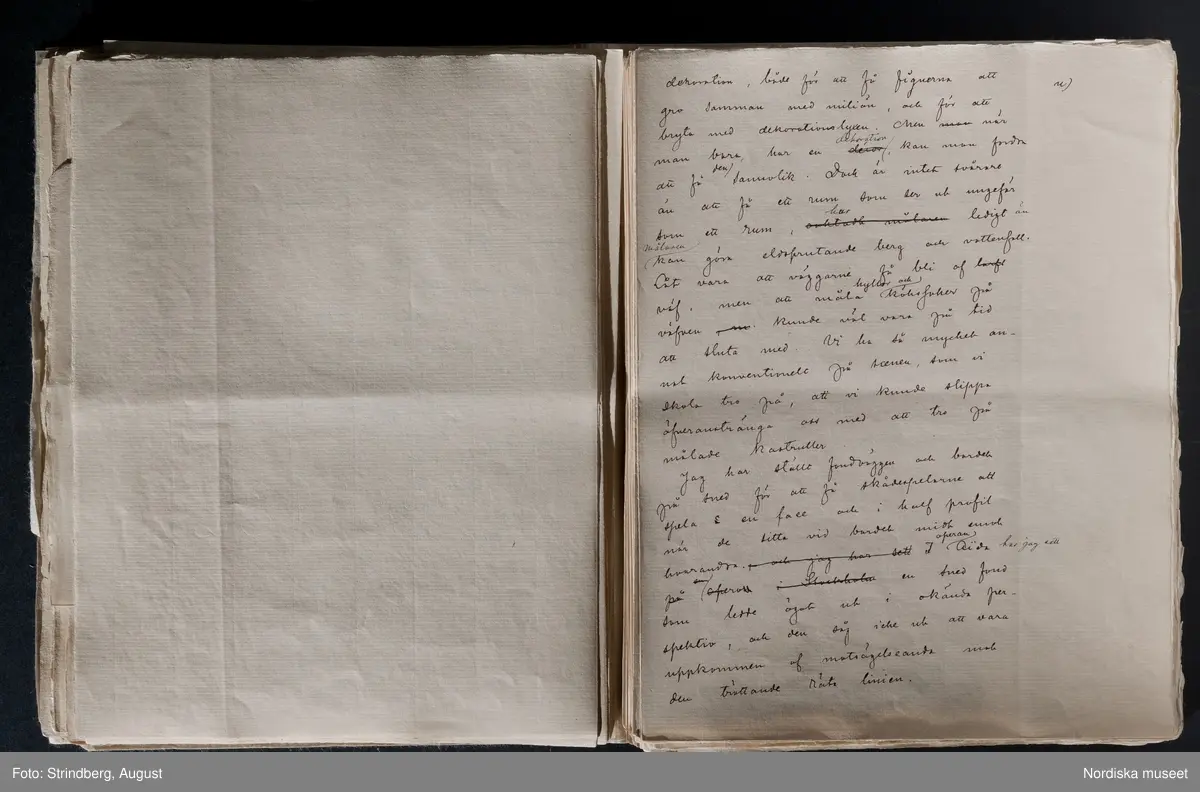 dekoration, både för att få figurerna att
u)
gro samman med miliön, och för att
bryta med dekorationslyxen. Men man när
dekoration
man bara har en dekor, kan man fordra
den
att få sannolik. Dock är intet svårare
än att få ett rum som ser ut ungefär
har
som ett rum, målaren ledigt än
målaren
kan göra eldsprutande berg och vattenfall.
Låt vara att väggarne få bli af
hyllor och
väf, men att måla kökssaker på
väfven kunde väl vara på tid
att sluta med. Vi ha så mycket an-
nat konventionelt på scenen, som vi
skola tro på, att vi kunde slippa
öfveranstränga oss med att tro på
målade kastruller.
Jag har ställt fondväggen och bordet
på sned för att få skådespelarne att
spela en face och i half profil
när de sitta vid bordet midt emot
operan
hvarandra. och jag har sett I Aïda har jag sett
en
på operan i Stockholm en sned fond
som ledde ögat ut i okända per-
spektiv, och den såg icke ut att vara
uppkommen af motsägelseanda mot
den tröttande räta linien.
Foto: Strindberg, August
Nordiska museet